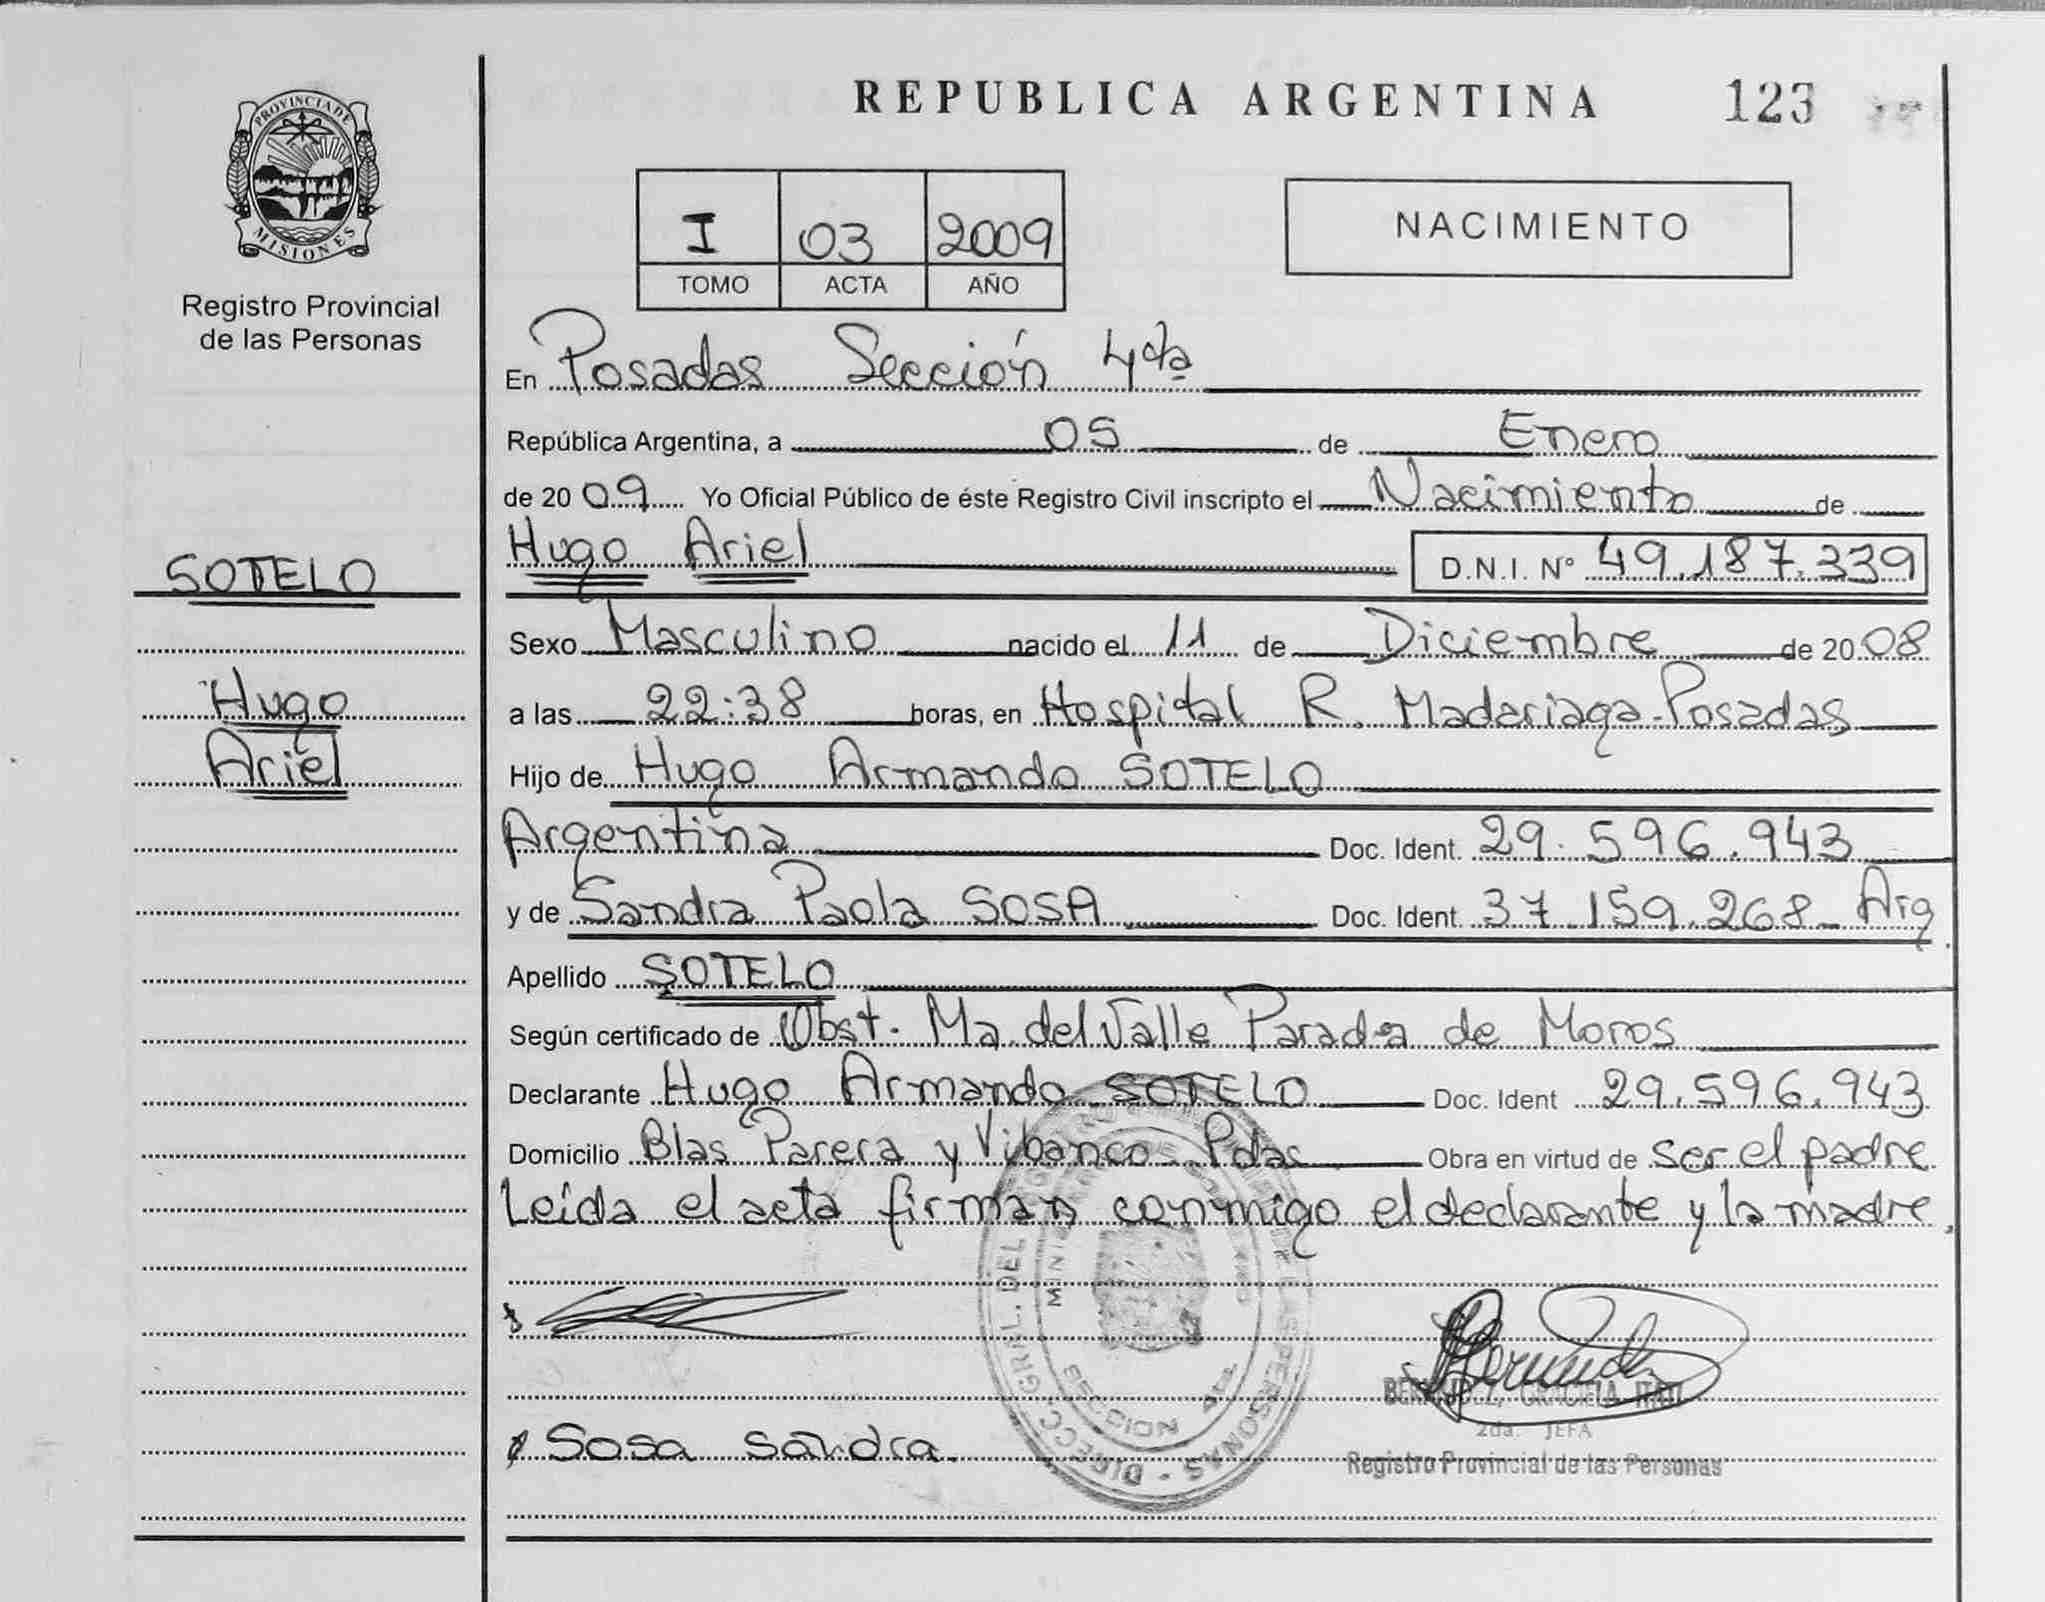 REPUBLICA ARGENTINA 123
PROVINCIA DE
MISIONES
Registro Provincial
de las Personas
I 03 2009
TOMO ACTA AÑO
NACIMIENTO
En Posadas Sección 4ta
República Argentina, a 05 de Enero
de 2009 Yo Oficial Público de éste Registro Civil inscripto el Nacimiento de
Hugo Ariel D.N.I. Nº 49.187.339
SOTELO
Hugo
Ariel
Sexo Masculino nacido el 11 de Diciembre de 2008
a las 22:38 horas, en Hospital R. Madariaga-Posadas
Hijo de Hugo Armando SOTELO
Argentina Doc. Ident. 29.596.943
y de Sandra Paola SOSA Doc. Ident. 37.159.268 Arg
Apellido SOTELO
Según certificado de Obst. Ma. del Valle Parada de Moros
Declarante Hugo Armando SOTELO Doc. Ident 29.596.943
Domicilio Blas Parera y Vibanco Pdas Obra en virtud de ser el padre
Leída el acta firman conmigo el declarante y la madre.
Sosa Sandra.
GRACIELA
2da. JEFA
Registro Provincial de las Personas
DIRECC. GRAL. DEL PERSONAS